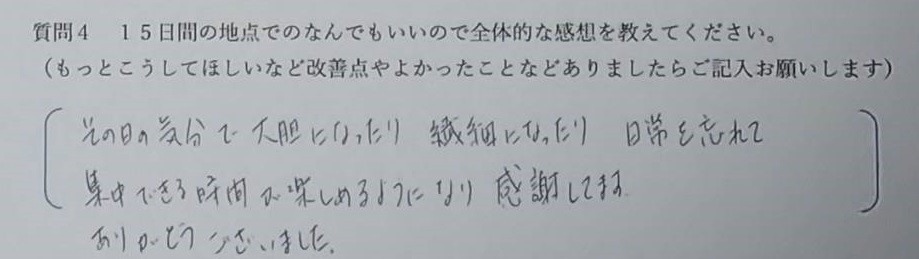 質問４　１５日間の地点でのなんでもいいので全体的な感想を教えてください。
（もっとこうしてほしいなど改善点やよかったことなどありましたらご記入お願いします）
その日の気分で 大胆になったり 繊細になったり 日常を忘れて
集中できる時間が楽しめるようになり 感謝してます
ありがとうございました。